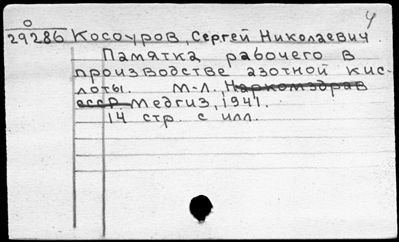 ч
О
29286 Косоуров, Сергей Николаевич.
Памятка рабочего в
производстве азотной кис-
лоты. М-Л, Наркомздрав
СССР Медгиз, 1941.
14 стр. с илл.